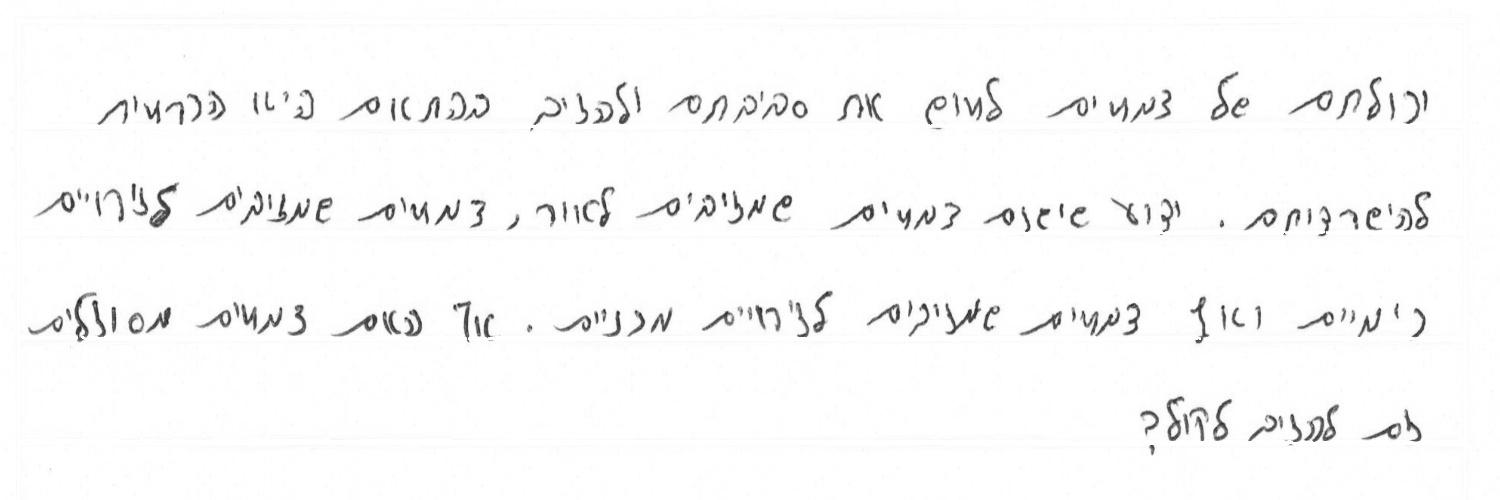 יכולתם של צמחים לחוש את סביבתם ולהגיב בהתאם היא הכרחית
להישרדותם. ידוע שישנם צמחים שמגיבים לאור, צמחים שמגיבים לגירויים
כימיים ואף צמחים שמגיבים לגירויים מכניים. אך האם צמחים מסוגלים
גם להגיב לקול?